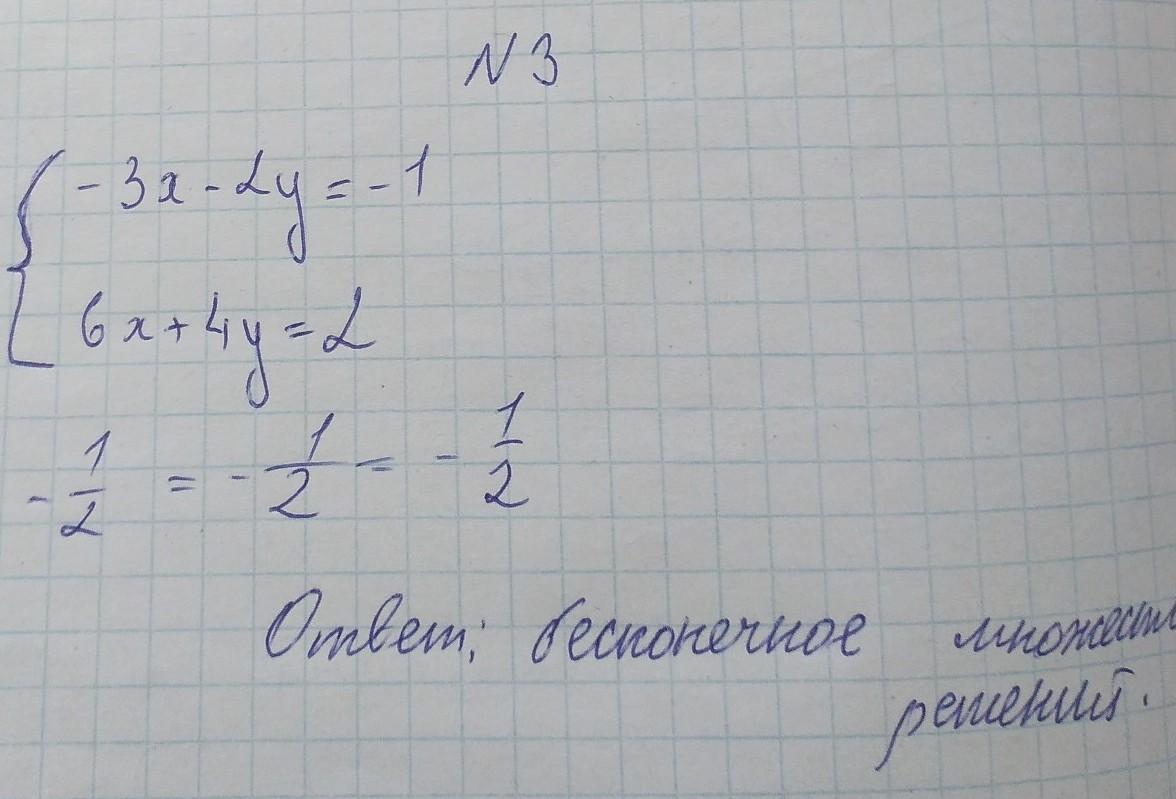 N 3
-3x - 2y = -1
6x + 4y = 2
-1/2 = -1/2 = -1/2
Ответ: бесконечное
решений.